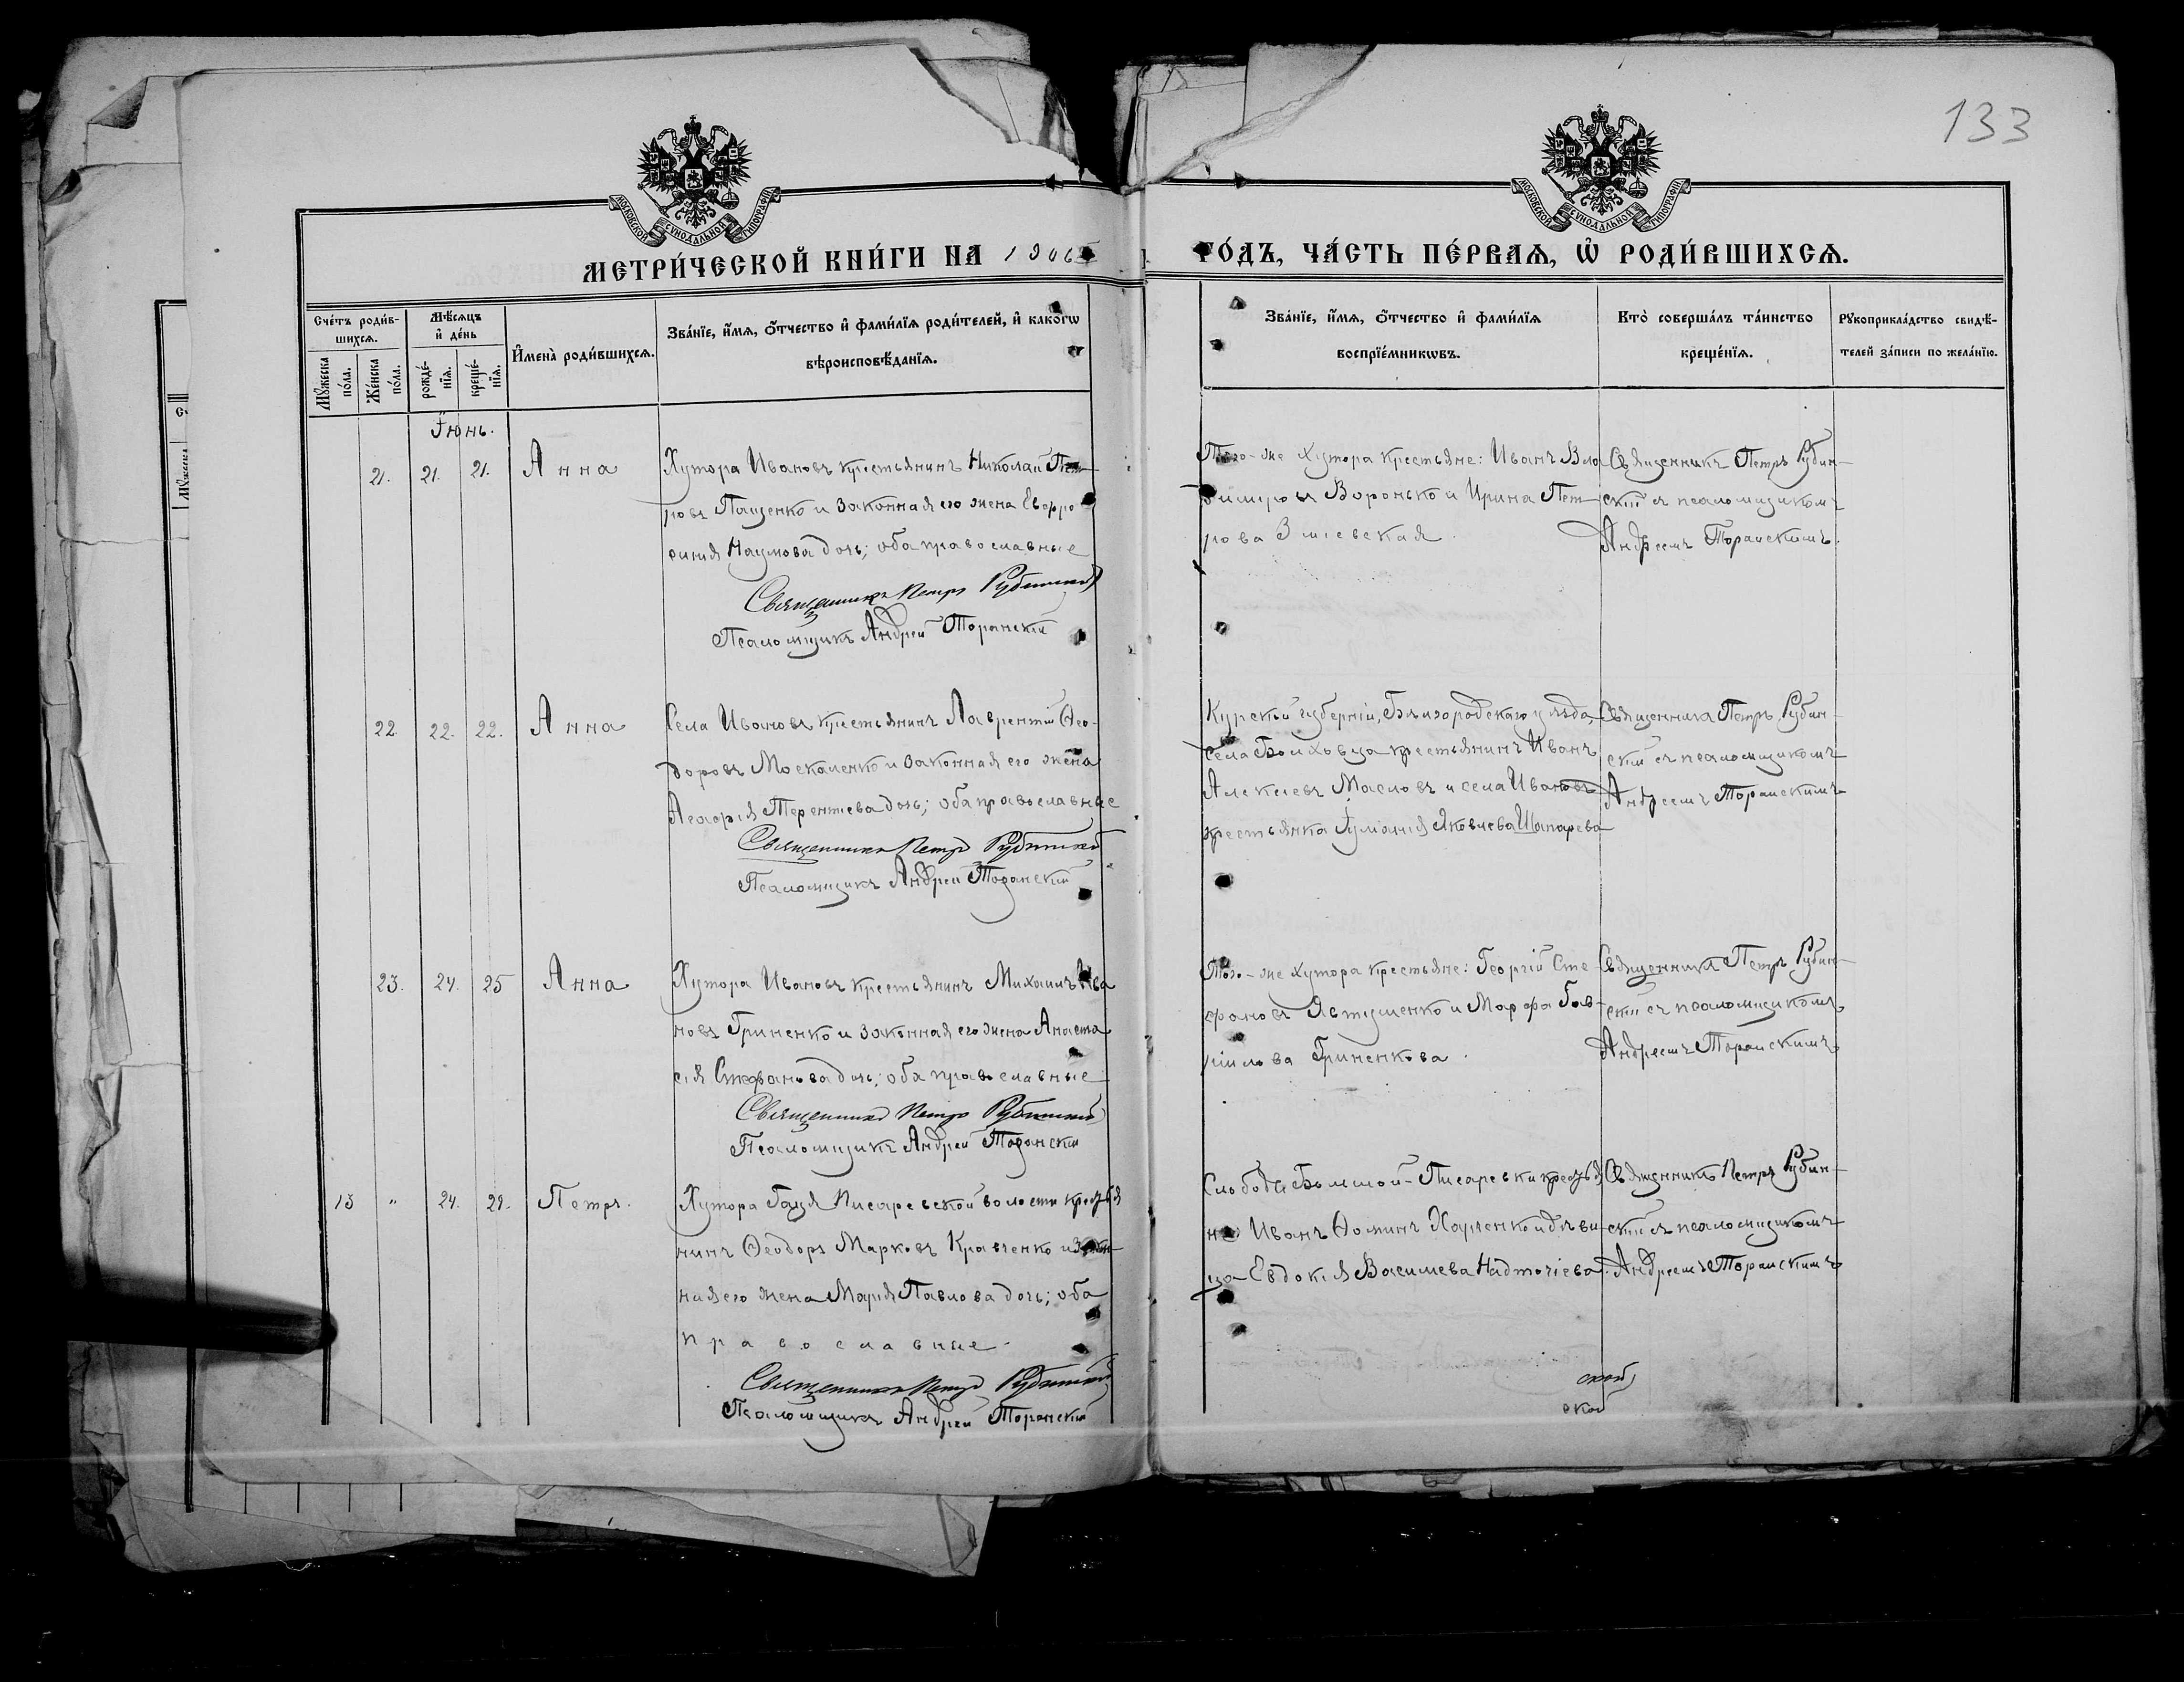 133
МОСКОВСКОЙ СѴНОДАЛЬНОЙ ТИПОГРАФІИ
МОСКОВСКОЙ СѴНОДАЛЬНОЙ ТИПОГРАФІИ
МЕТРИ́ЧЕСКОЙ КНИ́ГИ НА 1906 ГО́ДЪ, ЧА́СТЬ ПЕ́РВАѦ, Ѡ҆ РОДИ́ВШИХСѦ.
Сче́тъ роди́в-
шихсѧ.
Мѹ́жеска по́ла.
Же́нска по́ла.
Мѣ́сѧцъ
и҆ де́нь
рожде́-
нїѧ.
креще́-
нїѧ.
И҆мена̀ роди́вшихсѧ.
Зва́нїе, и҆́мѧ, ѻ҆́тчество и҆ фами́лїѧ роди́телей, и҆ како́гѡ
вѣроисповѣ́данїѧ.
Зва́нїе, и҆́мѧ, ѻ҆́тчество и҆ фами́лїѧ
воспрїе́мникѡвъ.
Кто̀ соверша́лъ та́инство
креще́нїѧ.
Рѹкоприкла́дство свидѣ́-
телей за́писи по жела́нїю.
Іюнь.
21. 21. 21. Анна
Хутора Ивановъ крестьянинъ Николай Пет-
ровъ Пащенко и законная его жена Евфро
синія Наумова дочь; оба православные
Священникъ Петръ Рубинскій
Псаломщикъ Андрей Торанскій
Того-же хутора крестьяне: Иванъ Вла
димировъ Воронько и Ирина Пет-
рова Зміевская.
Священникъ Петръ Рубин-
скій съ псаломщикомъ
Андреемъ Торанскимъ.
22. 22. 22. Анна
Села Ивановъ крестьянинъ Лаврентій Ѳео-
доровъ Москаленко и законная его жена
Агафія Терентьева дочь; оба православные
Священникъ Петръ Рубинскій
Псаломщикъ Андрей Торанскій
Курской губерніи, Бѣлгородскаго уѣзда,
села Болховца крестьянинъ Иванъ
Алексѣевъ Масловъ и села Ивановъ
крестьянка Іуліанія Яковлева Шапарева
Священникъ Петръ Рубин-
скій съ псаломщикомъ
Андреемъ Торанскимъ
23. 24. 25 Анна
Хутора Ивановъ крестьянинъ Михаилъ Ива
новъ Гриненко и законная его жена Анаста
сія Стефанова дочь; оба православные
Священникъ Петръ Рубинскій
Псаломщикъ Андрей Торанскій
Того-же хутора крестьяне: Георгій Сте
фановъ Явтушенко и Марфа Гав-
ріилова Гриненкова.
Священникъ Петръ Рубин-
скій съ псаломщикомъ
Андреемъ Торанскимъ
15 " 24. 29. Петръ.
Хутора Гаця Писаревской волости крестья
нинъ Ѳеодоръ Марковъ Кравченко и закон-
ная его жена Марія Павлова дочь; оба
православные
Священникъ Петръ Рубинскій
Псаломщикъ Андрей Торанскій
Слободы Большой-Писаревки крестья
не Иванъ Ѳоминъ Харченко и дѣви-
ца Евдокія Васильева Надточіева.
Священникъ Петръ Рубин-
скій съ псаломщикомъ
Андреемъ Торанскимъ
скій
скій